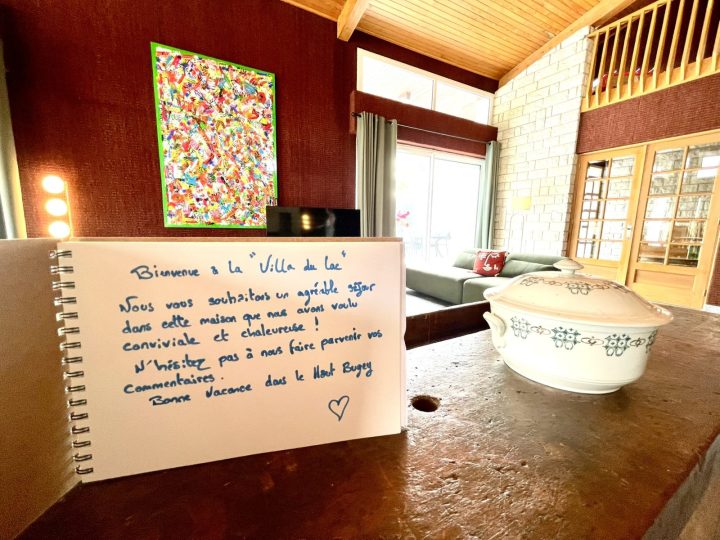 Bienvenue à la "Villa du Lac"
Nous vous souhaitons un agréable séjour
dans cette maison que nous avons voulu
conviviale et chaleureuse !
N'hésitez pas à nous faire parvenir vos
commentaires.
Bonne Vacance dans le Haut Bugey